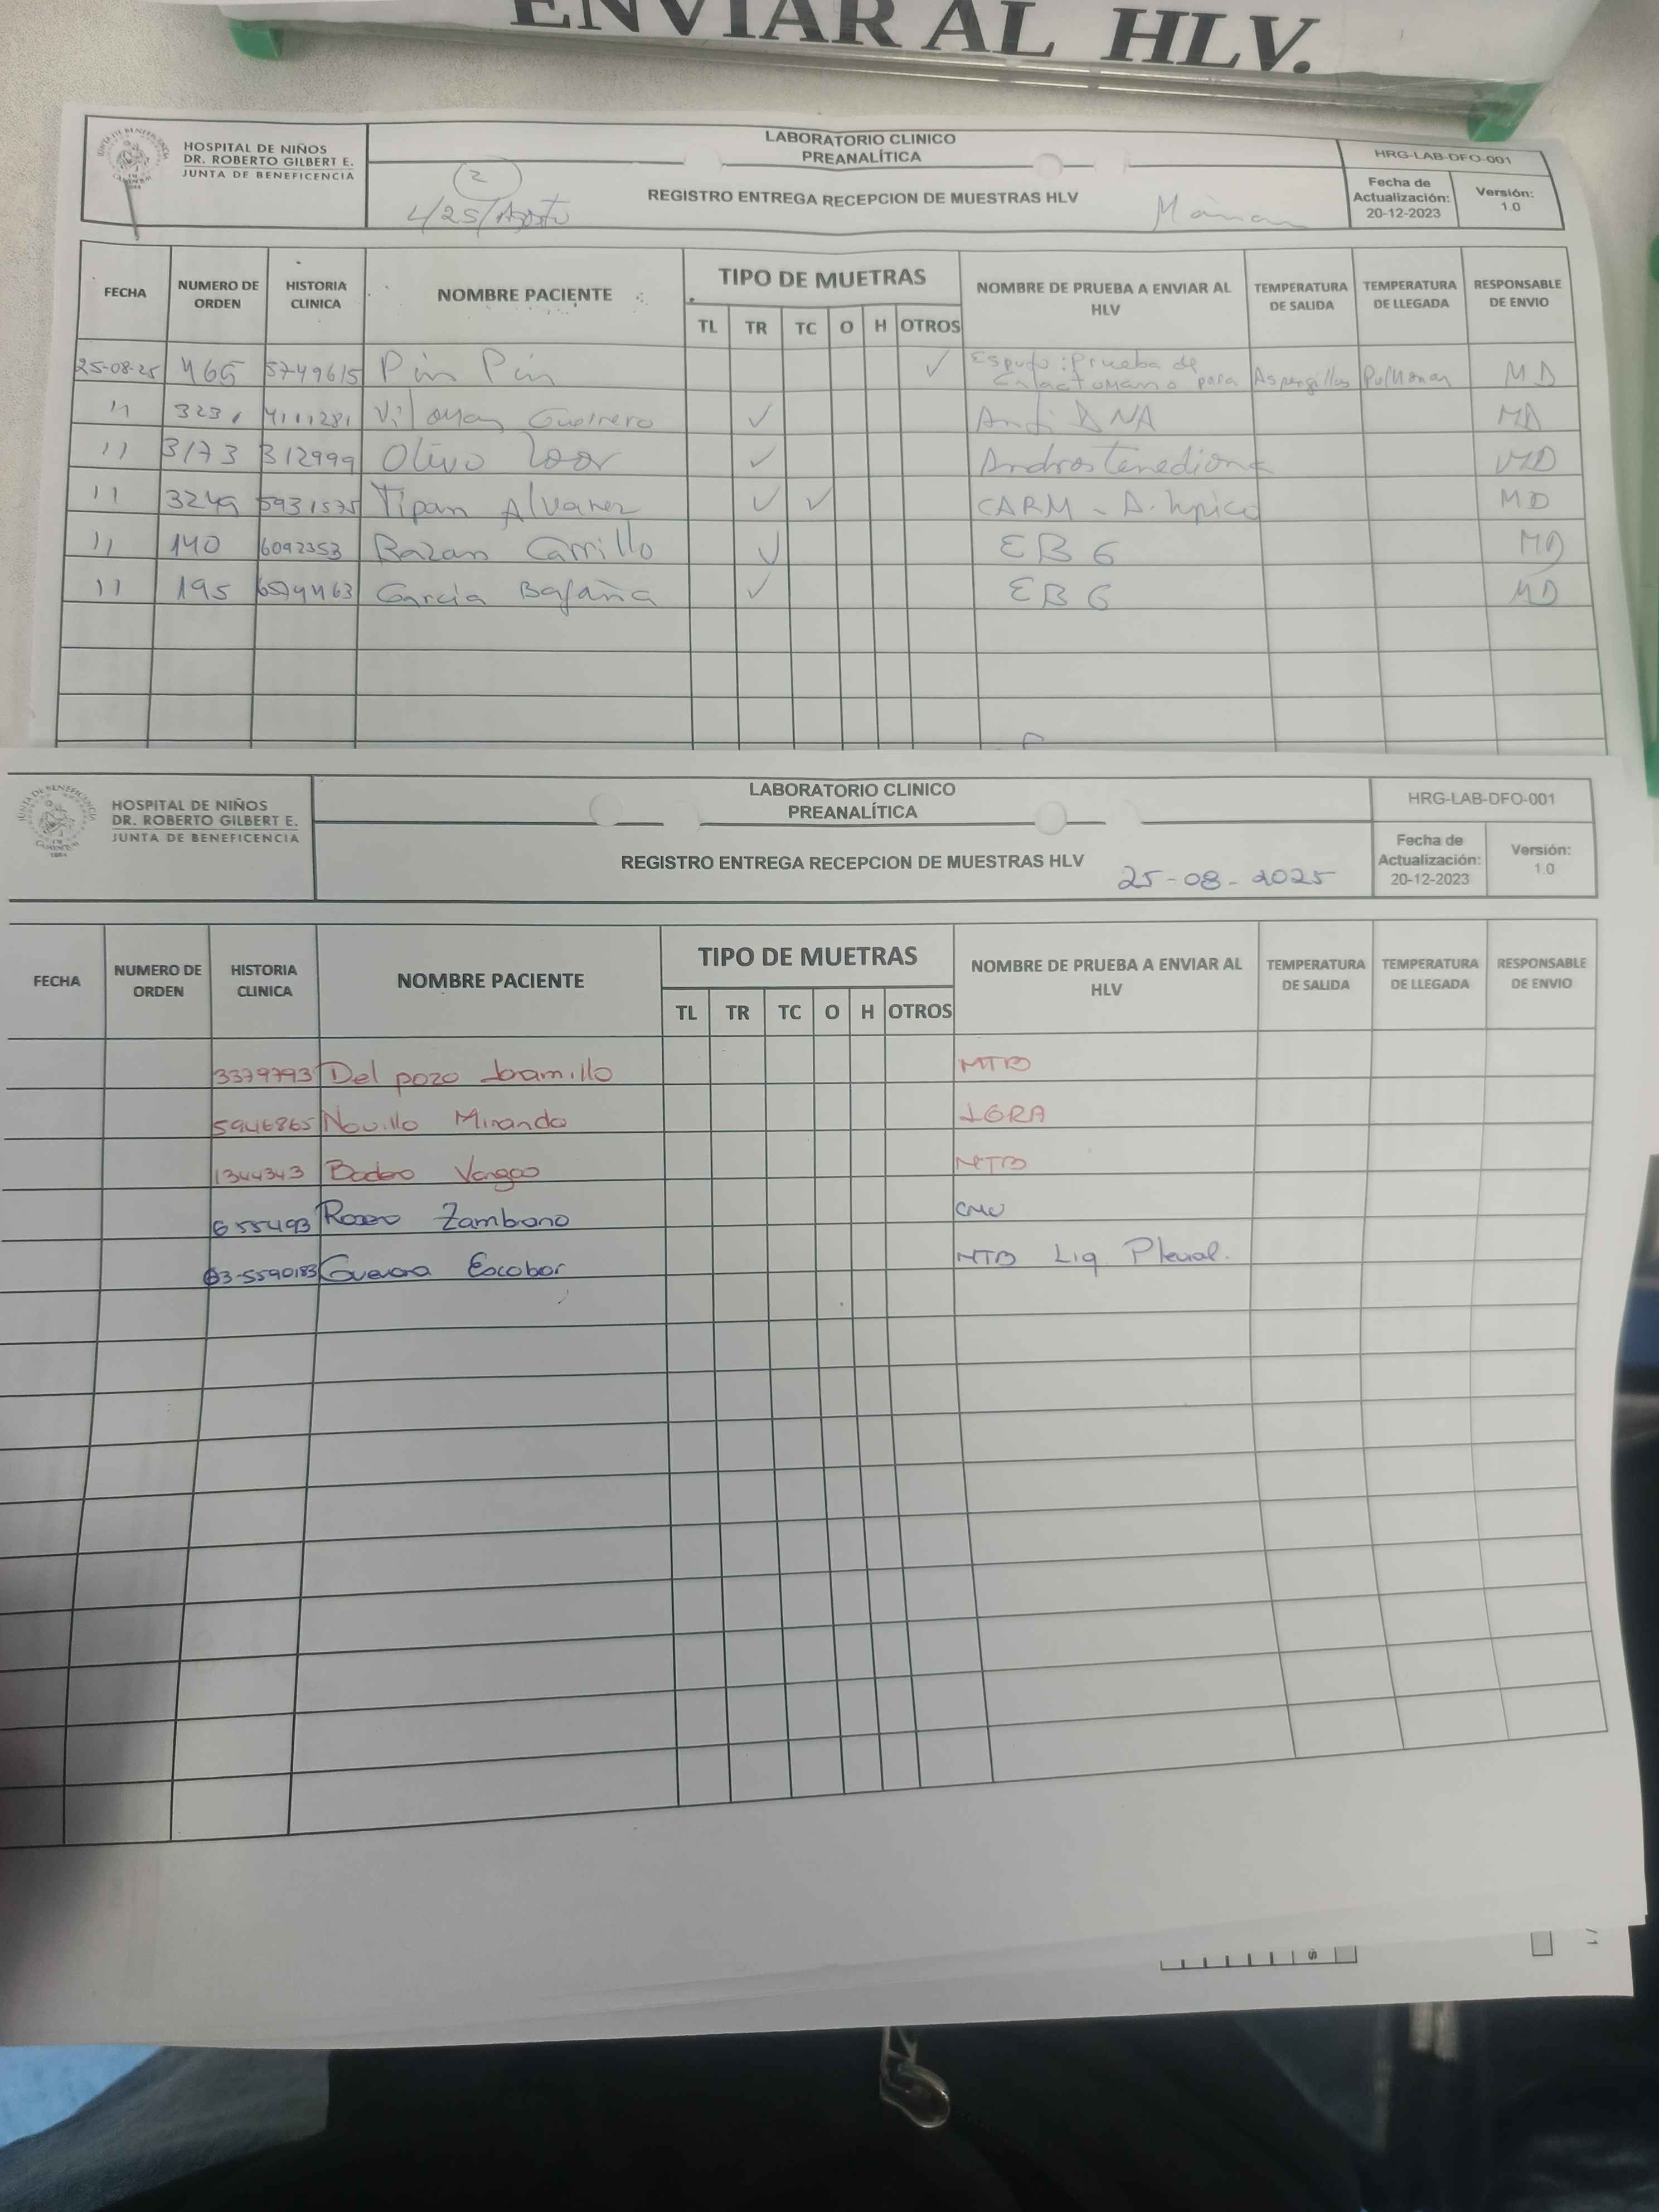 ENVIAR AL HLV.
HOSPITAL DE NIÑOS
DR. ROBERTO GILBERT E.
JUNTA DE BENEFICENCIA
LABORATORIO CLINICO
PREANALÍTICA
HRG-LAB-DFO-001
2
REGISTRO ENTREGA RECEPCION DE MUESTRAS HLV
Fecha de Actualización: 20-12-2023
Versión: 1.0
FECHA NUMERO DE ORDEN HISTORIA CLINICA NOMBRE PACIENTE TIPO DE MUETRAS NOMBRE DE PRUEBA A ENVIAR AL HLV TEMPERATURA DE SALIDA TEMPERATURA DE LLEGADA RESPONSABLE DE ENVIO
TL TR TC O H OTROS
25-08-25 465 5749615 Pin Pin ✓ Esputo: Prueba de para Pulmonar MD
11 4111281 Guerrero ✓ Anti DNA MD
11 3173 312999 Olivo Loor ✓ Androstenediona MD
11 3249 5931575 Tipan Alvarez ✓ ✓ CARM - MD
11 140 6092353 Bazan Carrillo ✓ EB6 MD
11 195 Garcia ✓ EB6 MD
HOSPITAL DE NIÑOS
DR. ROBERTO GILBERT E.
JUNTA DE BENEFICENCIA
LABORATORIO CLINICO
PREANALÍTICA
HRG-LAB-DFO-001
REGISTRO ENTREGA RECEPCION DE MUESTRAS HLV
25-08-2025
Fecha de Actualización: 20-12-2023
Versión: 1.0
FECHA NUMERO DE ORDEN HISTORIA CLINICA NOMBRE PACIENTE TIPO DE MUETRAS NOMBRE DE PRUEBA A ENVIAR AL HLV TEMPERATURA DE SALIDA TEMPERATURA DE LLEGADA RESPONSABLE DE ENVIO
TL TR TC O H OTROS
3379793 Del pozo Jaramillo MTB
5946865 Novillo Miranda IGRA
1344343 Vargas MTB
655493 Zambrano CMV
Guevara Escobar MTB Liq Pleural.